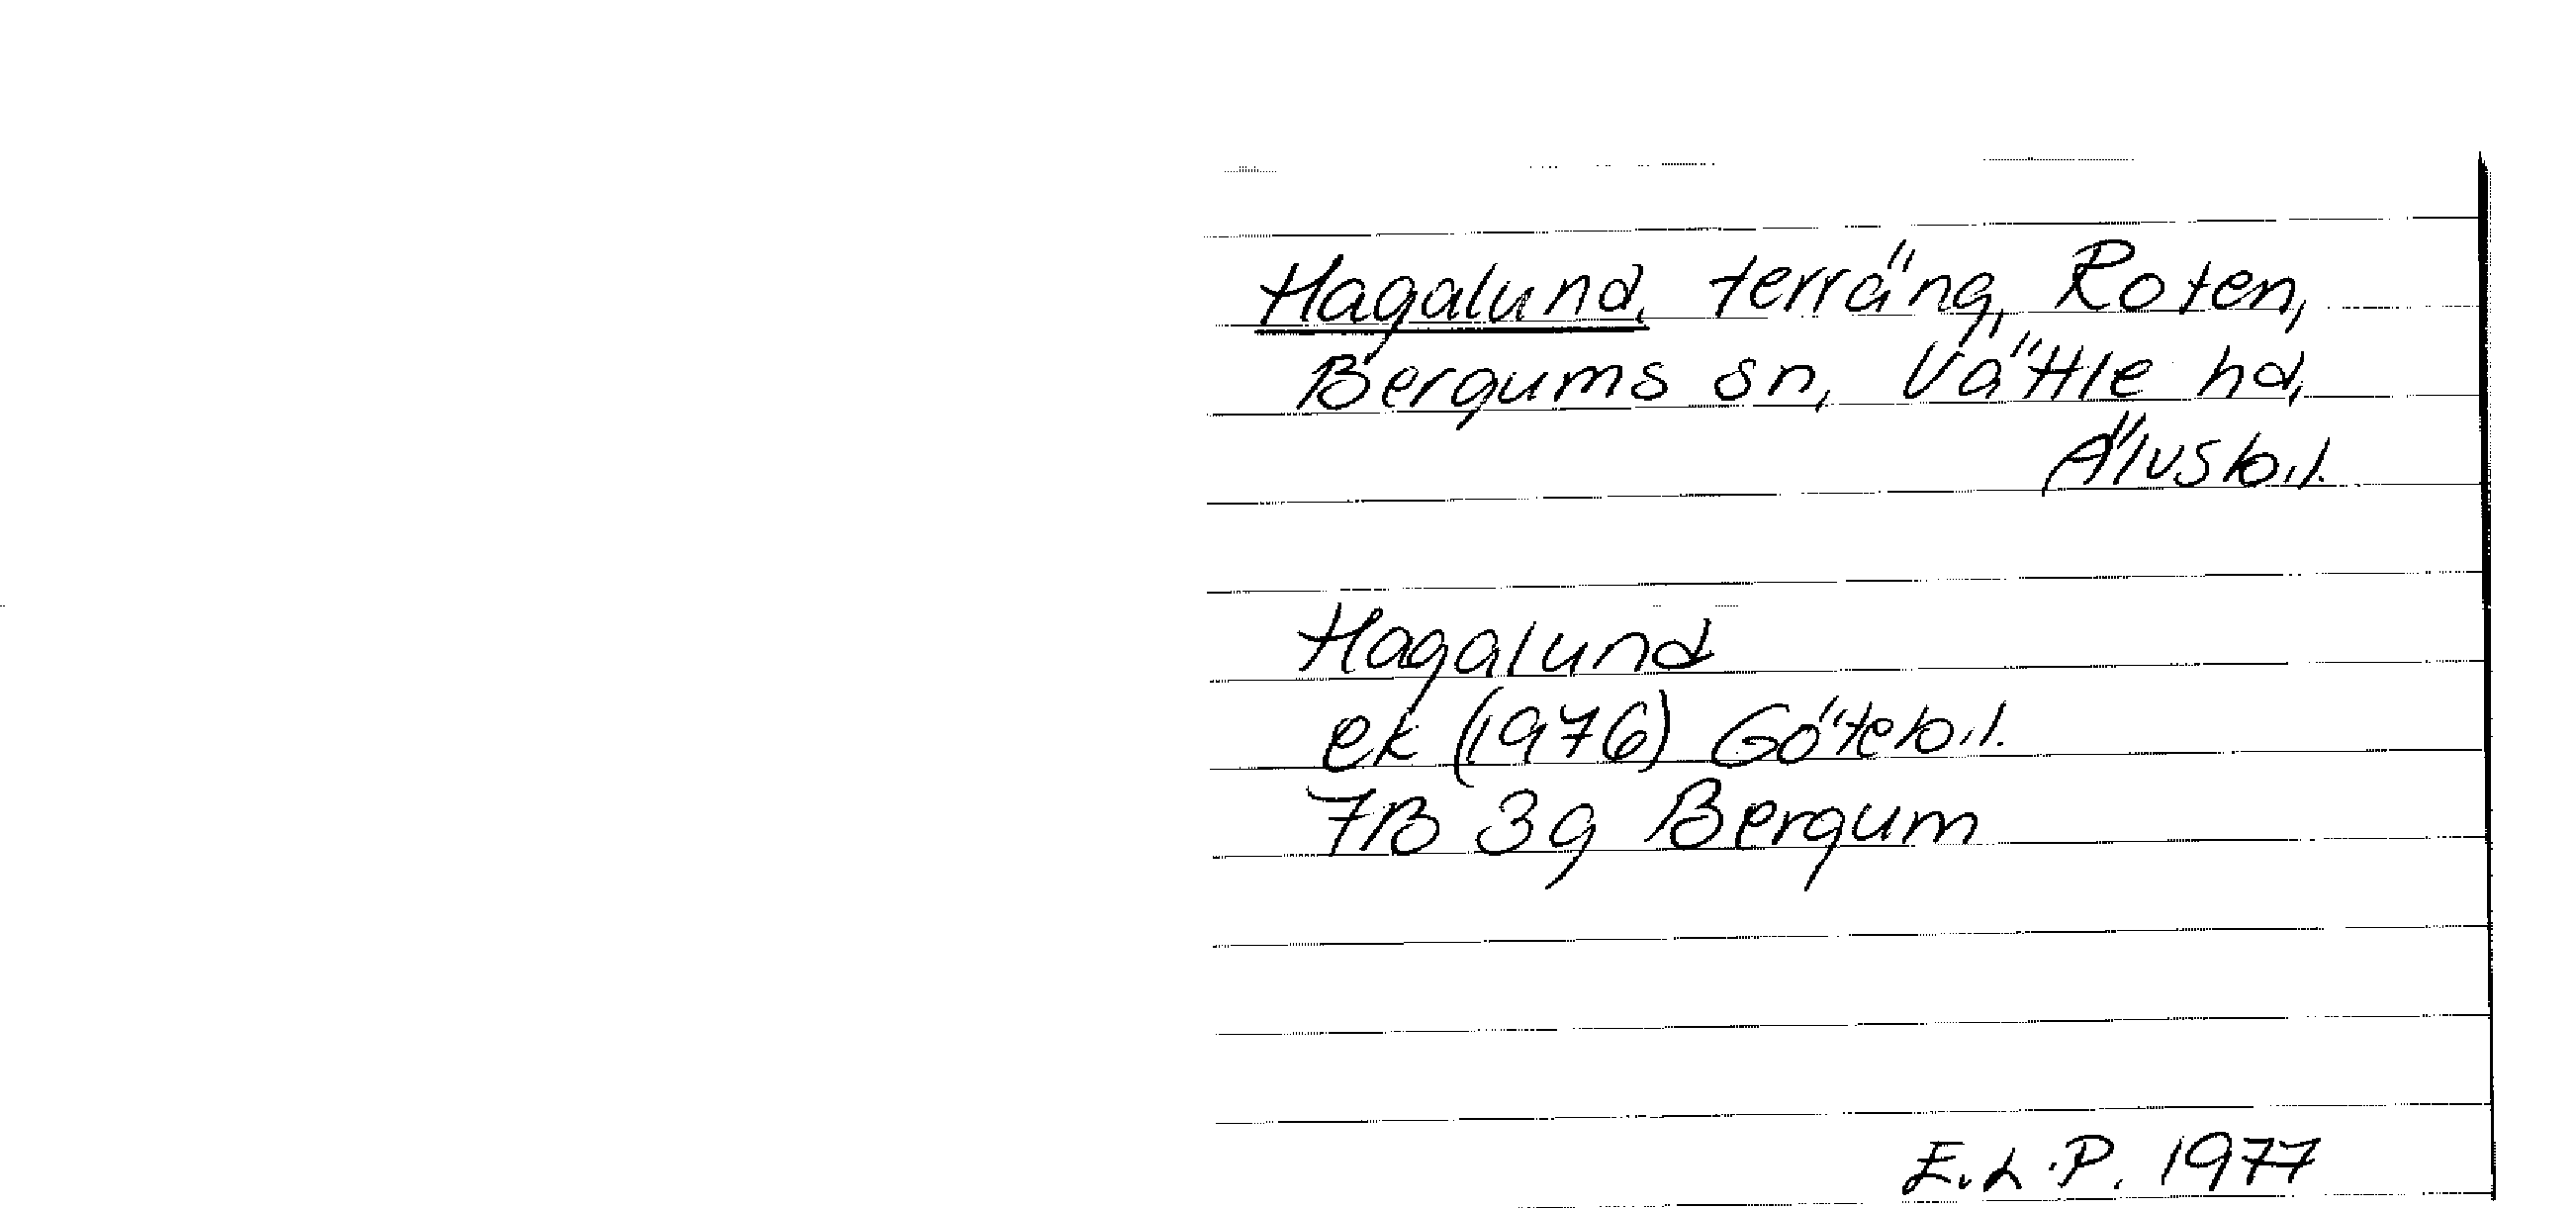 Hagalund, terräng, Roten,
Bergums sn, Vättle hd,
Älvsb.l.
Hagalund
ek (1976) Göteb.l.
7B 3g Bergum
E.L.P. 1977